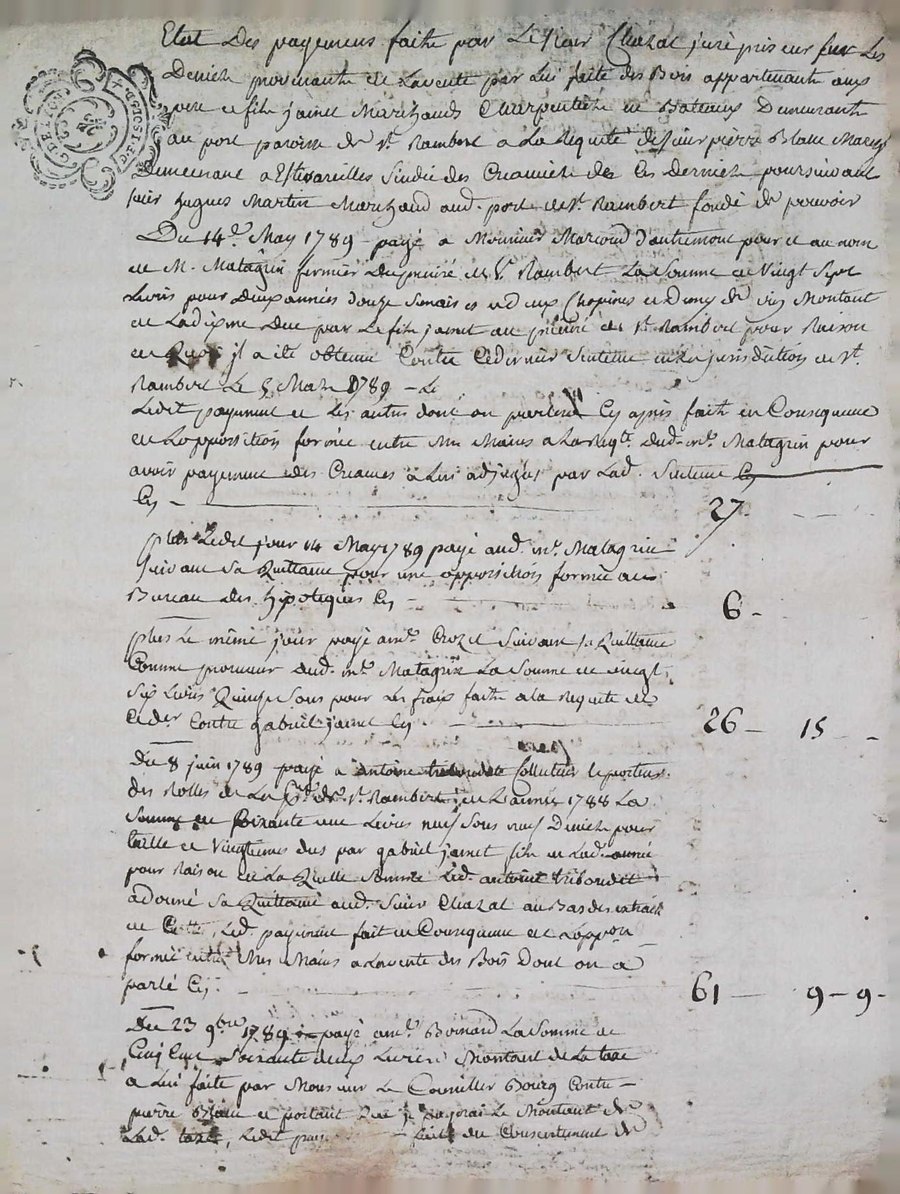 Etat Des payemens faits par Le sieur Chazal juré priseur sur Les
Deniers provenants de Lavente par Lui faite des Bois appartenants aux
pere et fils jamet Marchands Charpentiers en Bateaux Demeurants
au port paroisse de St. Rambert a La Requete de sieur pierre Blanc March
Demeurant a Estivareilles Sindic des Creanciers de Ces Derniers poursuivant
sieur hugues Martin Marchand aud. port de St. Rambert fondé de pouvoir
Du 14e. May 1789 payé a Monsieur Marcoud d'antremont pour et au nom
de M. Matagrin fermier du prieuré de St. Rambert La Somme de Vingt Sept
Livres pour Deux années douze et deux Chopines et Demy de vin Montant
de Ladixme Due par Le fils jamet au prieuré de St. Rambert pour Raison
de Quoy il a été obtenu Contre Cedernier Sentence en La jurisdiction de St.
Rambert Le 5 Mars 1789 - Le
Ledit payement et Les autres dont on parlera Cy après faits en Consequence
de Lopposition formée entre Mes Mains a La Reqte. dud. mr. Matagrin pour
avoir payement des Creances à Lui adjugées par Lad. Sentence Cy
Cy - 27
plus Ledit jour 14 May 1789 payé aud. mr. Matagrin
suivant Sa Quittance pour une opposition formée au
Bureau des hipoteques Cy - 6 -
plus Le même jour payé a mr. Croze Suivant sa Quittance
Comme procureur dud. mr. Matagrin La Somme de vingt
Six Livres Quinze Sous pour Les frais faits a la Requete de
Ceder Contre gabriel jamet Cy - 26 - 15 -
Du 8 juin 1789 payé a antoine Collecteur porteur
des Rolles de La de St. Rambert de L'année 1788 La
Somme de Soixante une Livres neuf Sous neuf Deniers pour
taille et Vingtiemes dus par gabriel jamet fils en Lad. année
pour Raison de La Quelle Somme Led. antoine tribondet
a donné Sa Quittance aud. Sieur Chazal au Bas des extraits
de Cotte, Led. payement fait en Consequence de Loppon
formée entre Mes Mains a Lavente des Bois Dont on a
parlé Cy - 61 - 9 - 9 -
Du 23 9bre 1789 payé a mr. Boinard La Somme de
Cinq Cent Soixante deux Livres Montant de La taxe
a Lui faite par Monsieur Le Conseiller Bourg Contre
pierre Blanc et portant Que je payerai Le Montant de
Lad. taxe, Ledit fait du Consentement de